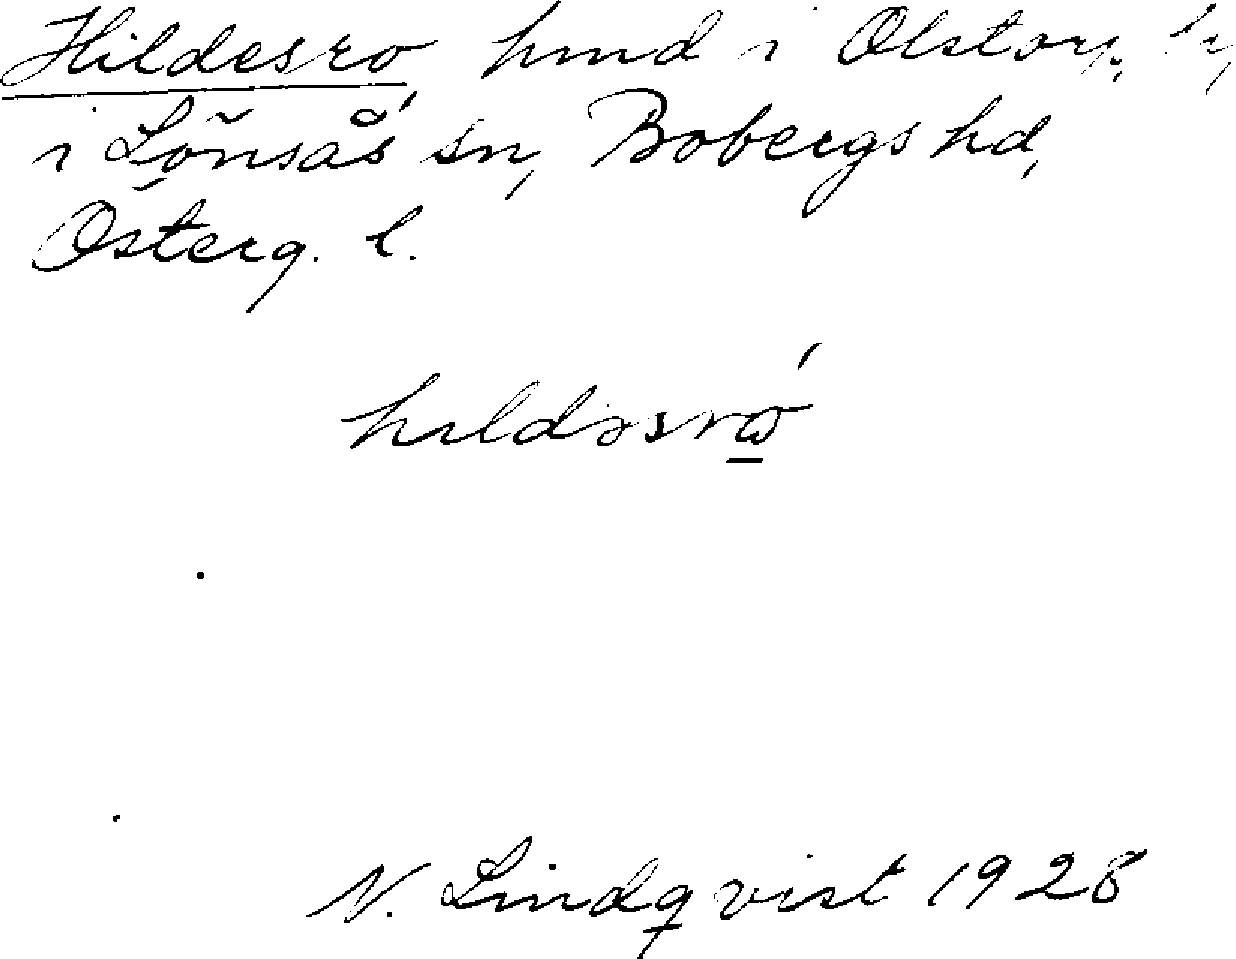 Hildesro, hmd i Olstorp, by,
i Lönsås sn, Bobergs hd,
Österg. l.
hıldəsrώ̲
N. Lindqvist 1928